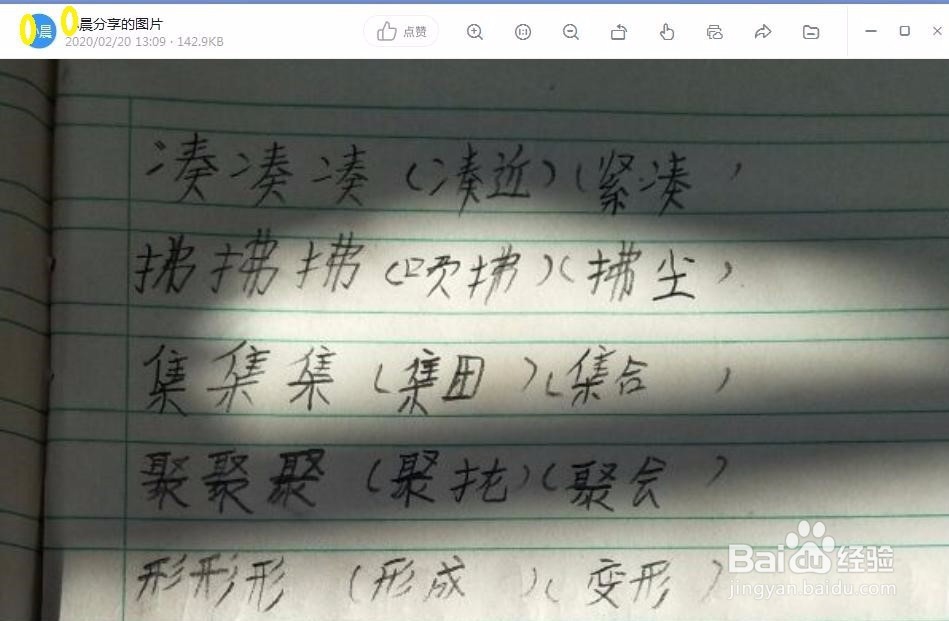 小晨
晨分享的图片
2020/02/20 13:09 · 142.9KB
点赞
凑凑凑（凑近）（紧凑）
拂拂拂（吹拂）（拂尘）
集集集（集团）（集合）
聚聚聚（聚）（聚会）
形形形（形成）（变形）
Baidu经验
jingyan.baidu.com